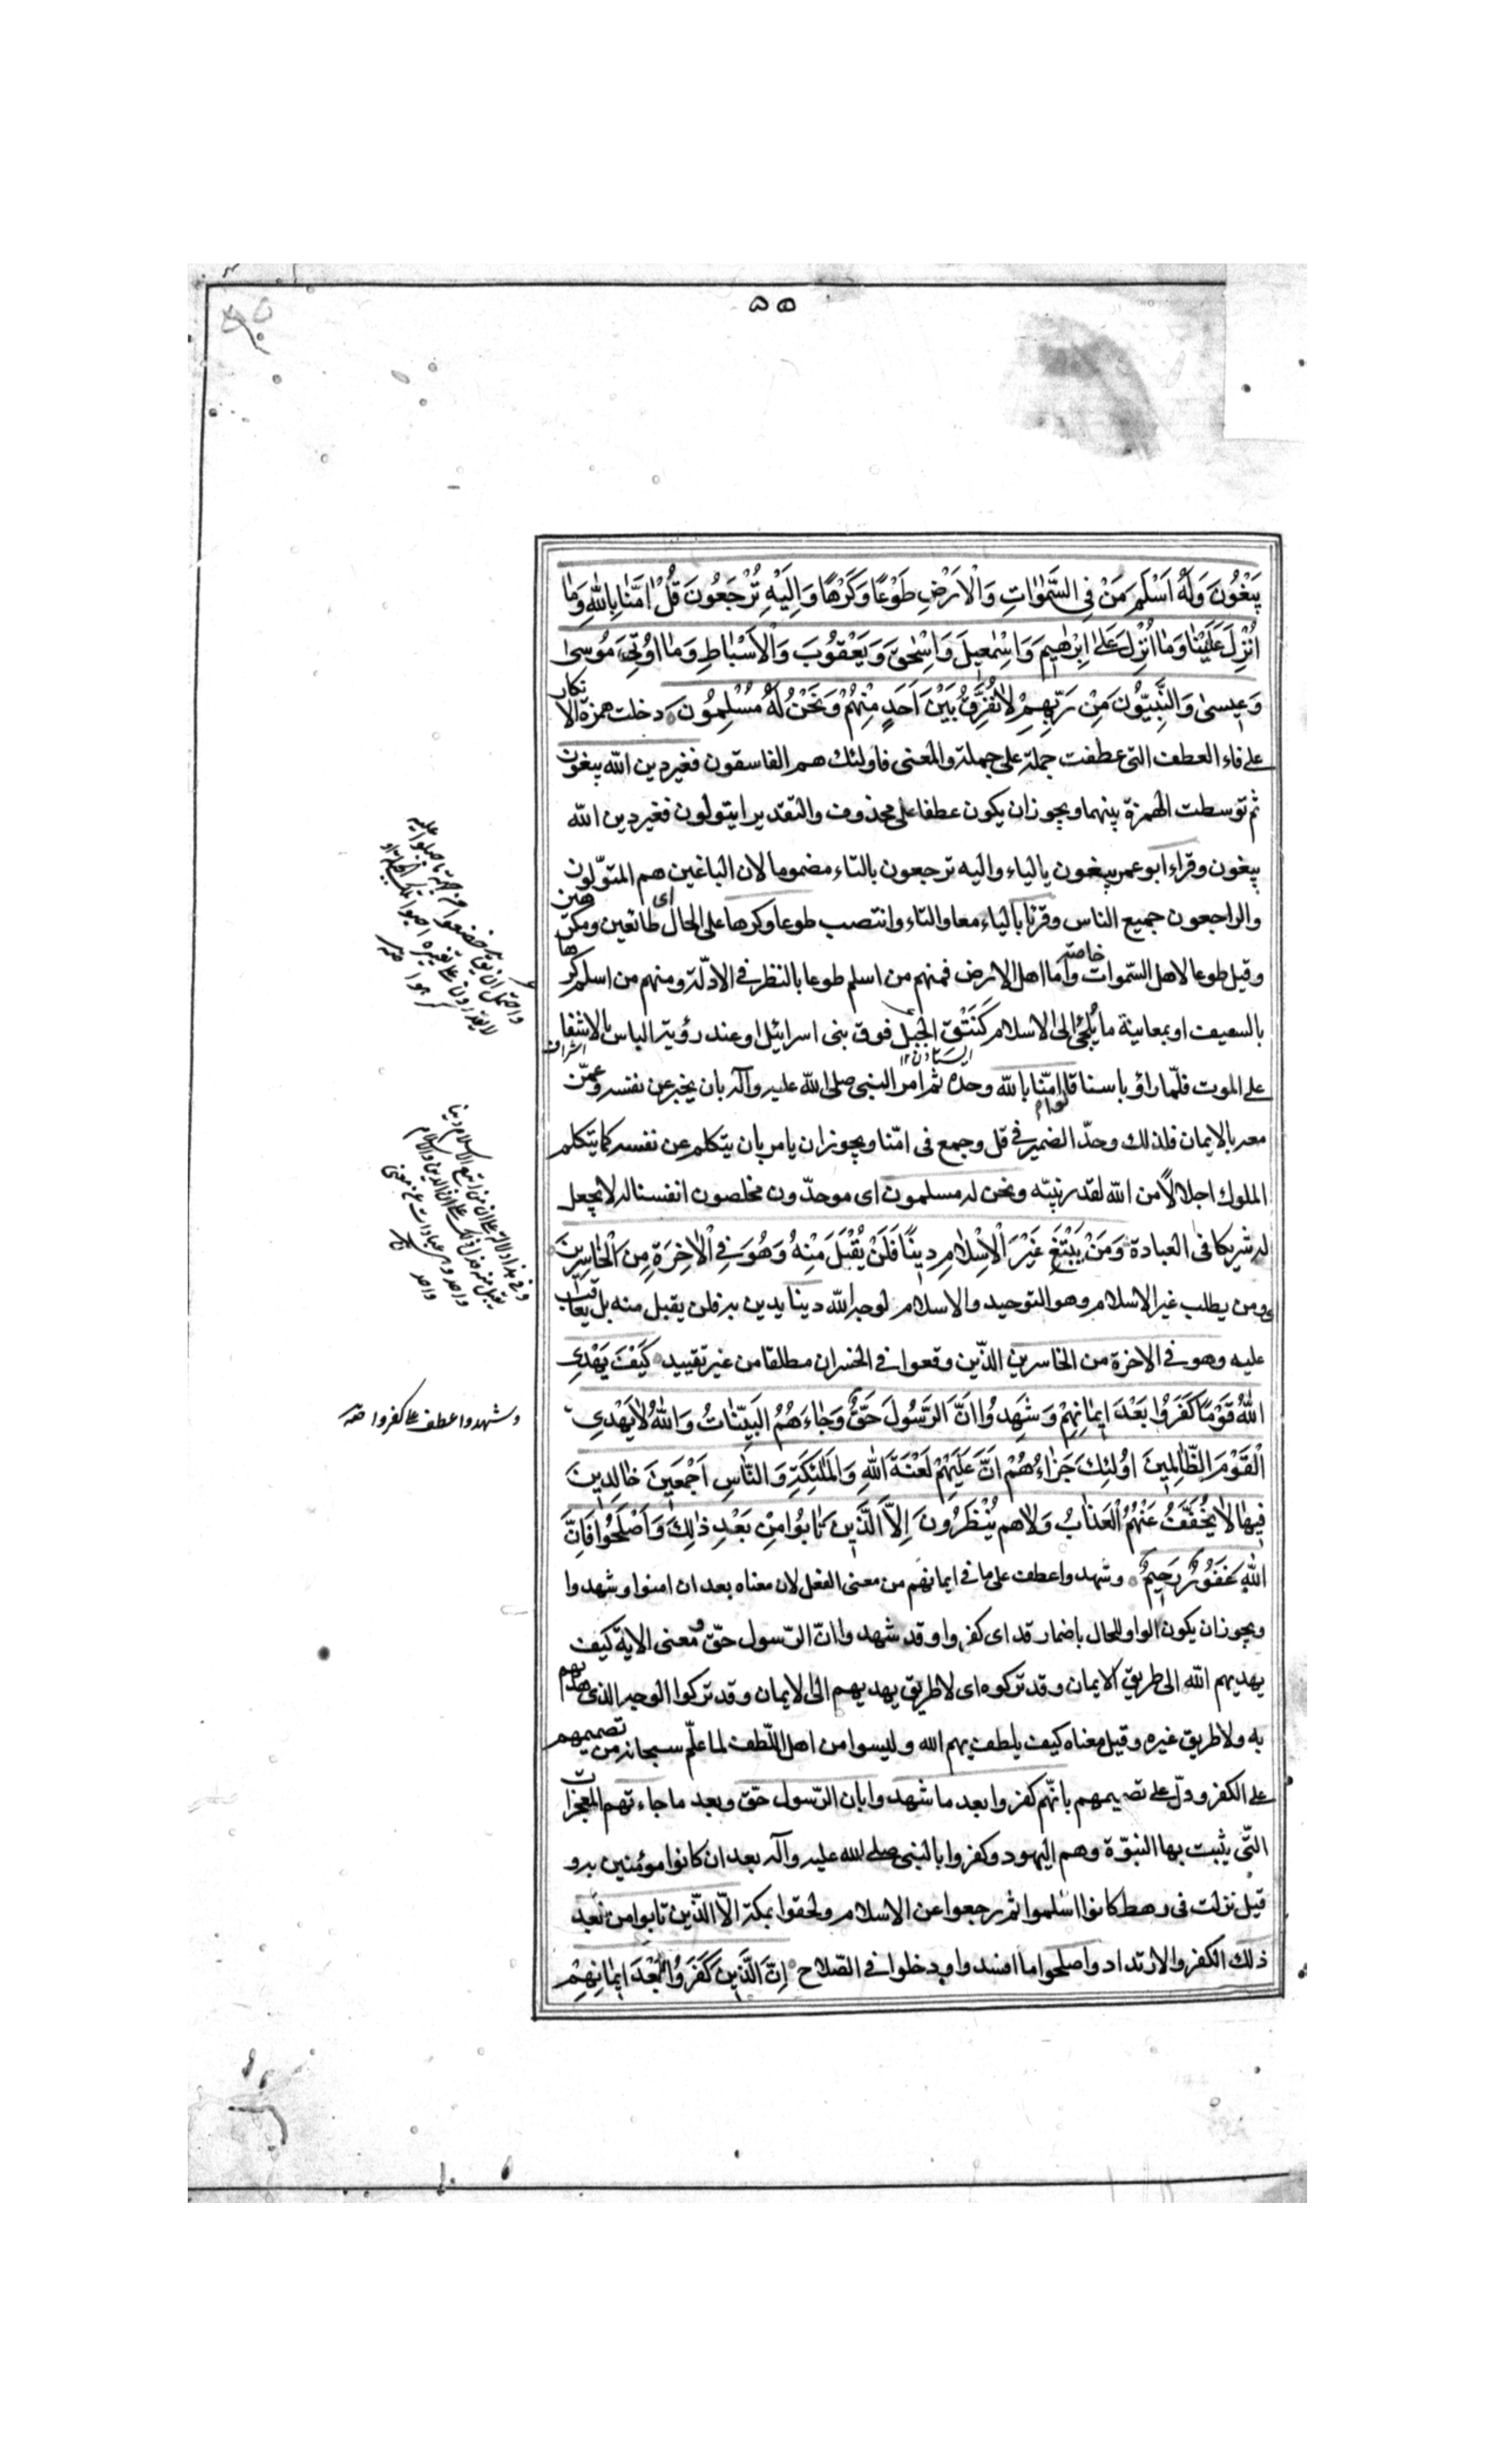 ۵۵
يَبْغُونَ وَلَهُ اَسْلَمَ مَنْ فِي السَّمٰوٰاتِ وَالْاَرْضِ طَوْعًا وَكَرْهًا وَاِلَيْهِ تُرْجَعُونَ قُلْ اٰمَنّٰا بِاللّٰهِ وَمٰا
اُنْزِلَ عَلَيْنٰا وَمٰا اُنْزِلَ عَلٰى اِبْرٰهِيمَ وَاِسْمٰعِيلَ وَاِسْحٰقَ وَيَعْقُوبَ وَالْاَسْبٰاطِ وَمٰا اُوتِيَ مُوسىٰ
وَعِيسىٰ وَالنَّبِيُّونَ مِنْ رَبِّهِمْ لٰا نُفَرِّقُ بَيْنَ اَحَدٍ مِنْهُمْ وَنَحْنُ لَهُ مُسْلِمُونَ دخلت همزة الانكار
على فاء العطف التى عطفت جملة على جملة والمعنى فاولئك هم الفاسقون فغير دين الله يبغون
ثم توسطت الهمزة بينهما ويجوز ان يكون عطفا على محذوف والتقدير ايتولون فغير دين الله
يبغون وقراء ابو عمر يبغون بالياء واليه ترجعون بالتاء مضموما لان الباغين هم المتولّون
والراجعون جميع الناس وقرئا بالياء معا والتاء وانتصب طوعا وكرها على الحال اى طائعين ومكرهين
وقيل طوعا لاهل السّموات خاصة واما اهل الارض فمنهم من اسلم طوعا بالنظر فى الادلّة ومنهم من اسلم كرها
بالسيف او بمعاينة ما يُلجئ الى الاسلام كَنَتْقِ الجبل فوق بنى اسرائيل او عند رؤية الباس بالاشفاء
على الموت فلمّا راؤ باسنا قالوا امنّا بالله وحده ثم امر النبى صلى الله عليه وآله بان يخبر عن نفسه وعمّن
معه بالايمان فلذلك وحدّ الضمير فى قل وجمع فى امنّا ويجوز ان يامر بان يتكلم عن نفسه كما يتكلم
الملوك اجلالاً من الله لقدر نبيّه ونحن له مسلمون اى موحدّون مخلصون انفسنا له لا نجعل
له شريكا فى العبادة وَمَنْ يَبْتَغِ غَيْرَ الْاِسْلٰامِ دِينًا فَلَنْ يُقْبَلَ مِنْهُ وَهُوَ فِي الْاٰخِرَةِ مِنَ الْخٰاسِرِينَ
اى ومن يطلب غير الاسلام وهو التوحيد والاسلام لوجه الله دينا يدين به فلن يقبل منه بل يعاقب
عليه وهو فى الاخرة من الخاسرين الذّين وقعوا فى الخسران مطلقا من غير تقييد كَيْفَ يَهْدِي
اللّٰهُ قَوْمًا كَفَرُوا بَعْدَ اِيمٰانِهِمْ وَشَهِدُوا اَنَّ الرَّسُولَ حَقٌّ وَجٰاءَهُمُ الْبَيِّنٰاتُ وَاللّٰهُ لٰا يَهْدِي
الْقَوْمَ الظّٰالِمِينَ اُولٰئِكَ جَزٰاءُهُمْ اَنَّ عَلَيْهِمْ لَعْنَةَ اللّٰهِ وَالْمَلٰئِكَةِ وَالنّٰاسِ اَجْمَعِينَ خٰالِدِينَ
فِيهٰا لٰا يُخَفَّفُ عَنْهُمُ الْعَذٰابُ وَلٰا هم يُنْظَرُونَ اِلَّا الَّذِينَ تٰابُوا مِنْ بَعْدِ ذٰلِكَ وَاَصْلَحُوا فَاِنَّ
اللّٰهَ غَفُورٌ رَحِيمٌ وشهدوا عطف على ما فى ايمانهم من معنى الفعل لان معناه بعد ان امنوا وشهدوا
ويجوز ان يكون الواو للحال باضمار قد اى كفروا وقد شهدوا انّ الرّسول حقّ ومعنى الاية كيف
يهديهم الله الى طريق الايمان وقد تركوه اى لا طريق يهديهم الى الايمان وقد تركوا الوجه الذى هداهم
به ولا طريق غيره وقيل معناه كيف يلطف بهم الله وليسوا من اهل اللّطف لما علم سبحانه من تصميمهم
على الكفر ودلّ على تصميمهم بانّهم كفروا بعد ما شهدوا بان الرّسول حق وبعد ما جاءتهم المعجزات
التّى يثبت بها النبوّة وهم اليهود وكفروا بالنبى صلى الله عليه وآله بعد ان كانوا مؤمنين به و
قيل نزلت فى رهط كانوا اسلموا ثم رجعوا عن الاسلام ولحقوا بمكة الاّ الذّين تابوا من بعد
ذلك الكفر والارتداد واصلحوا ما افسدوا ودخلوا فى الصّلاح اِنَّ الَّذِينَ كَفَرُوا بَعْدَ اِيمٰانِهِمْ
وشهدوا عطف على كفروا